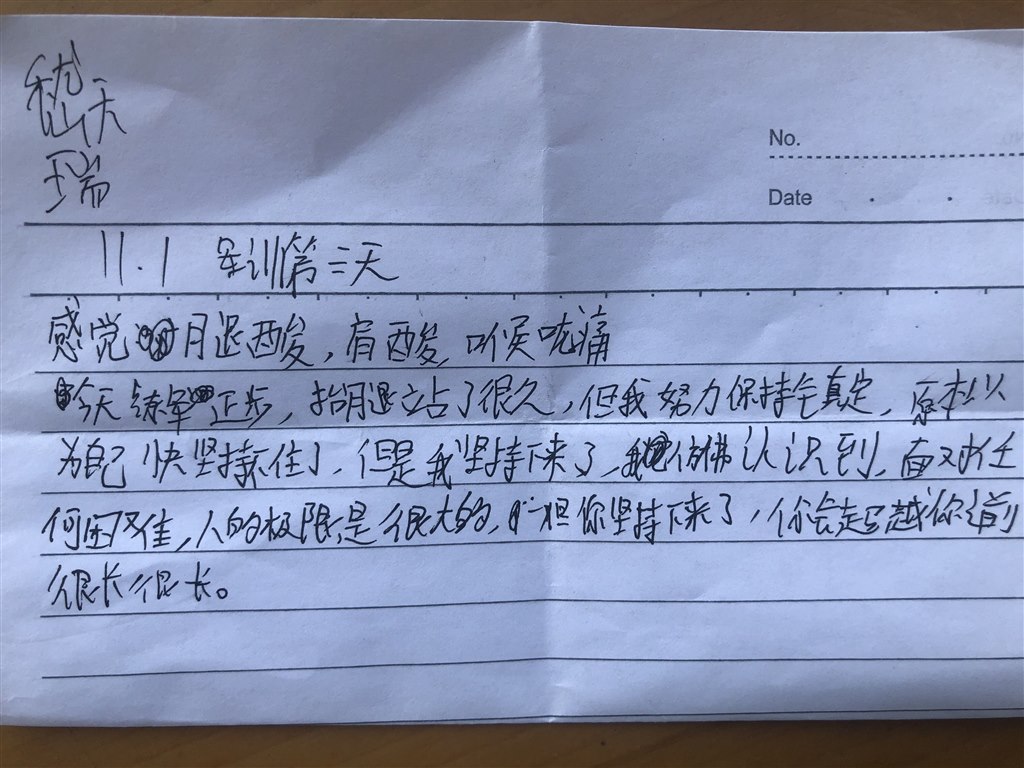 嵇天
瑞
No.
Date
11.1 军训第三天
感觉腿酸，肩酸，喉咙痛
今天练军正步，抬腿站了很久，但我努力保持镇定，原本以
为自己快坚持不住了，但是我坚持下来了，我仿佛认识到，面对任
何困难，人的极限是很大的，但你坚持下来了，你会超越你前
很长很长。